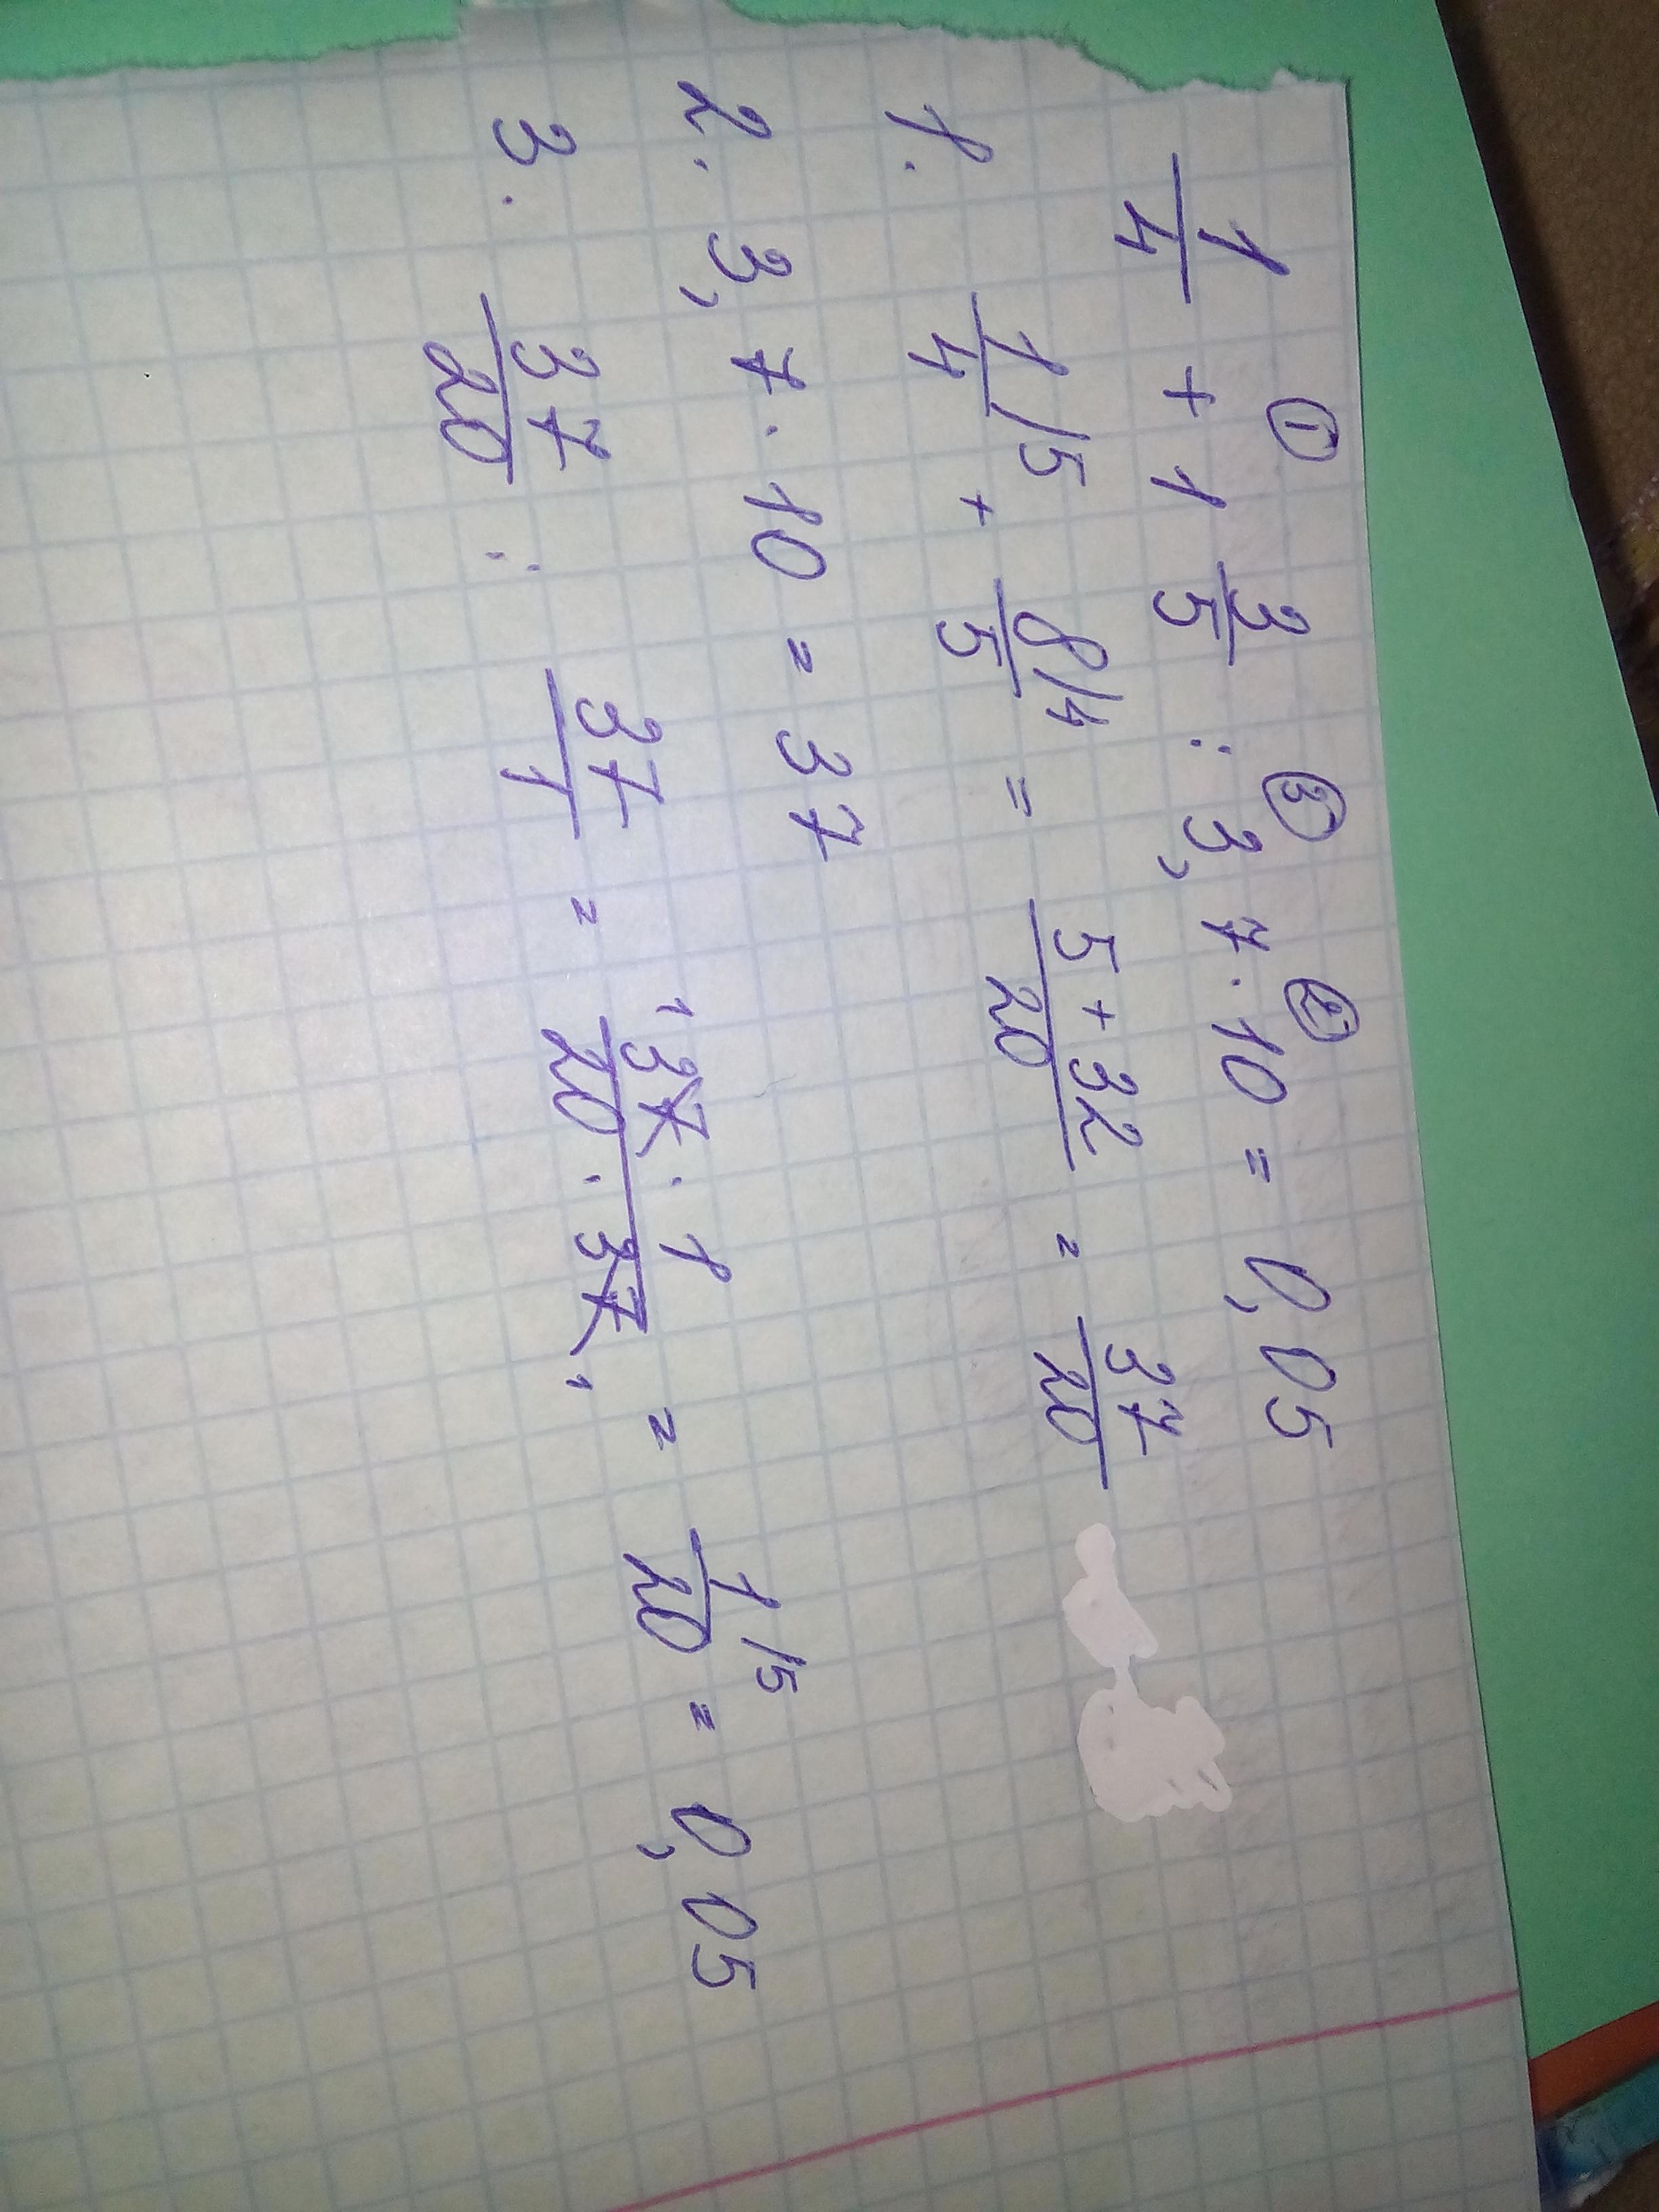 ① ③ ②
1/4 + 1 3/5 : 3,7 · 10 = 0,05
1. 1/4 /5 + 8/5 /4 = 5 + 32/20 = 37/20
2. 3,7 · 10 = 37
3. 37/20 : 37/1 = ¹37 · 1/20 · 37₁ = 1/20 /5 = 0,05